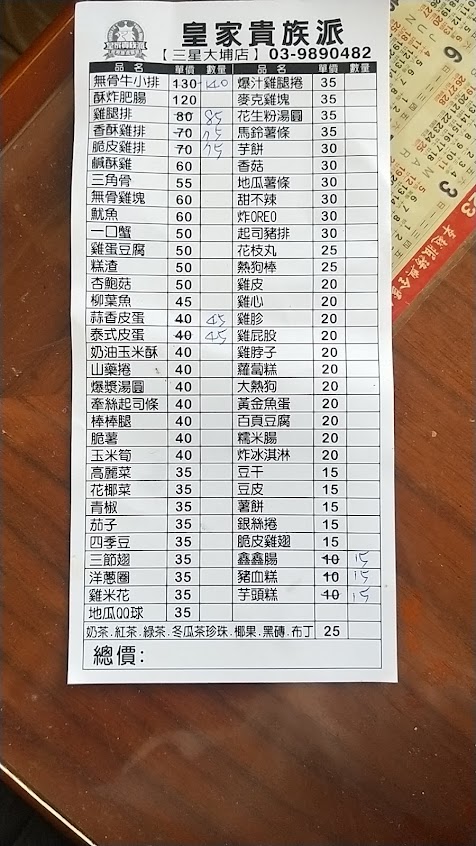 皇家貴族派
皇家貴族派
【三星大埔店】03-9890482
品名 單價 數量 品名 單價 數量
無骨牛小排 130 140 爆汁雞腿捲 35
酥炸肥腸 120 麥克雞塊 35
雞腿排 80 85 花生粉湯圓 35
香酥雞排 70 75 馬鈴薯條 35
脆皮雞排 70 75 芋餅 30
鹹酥雞 60 香菇 30
三角骨 55 地瓜薯條 30
無骨雞塊 60 甜不辣 30
魷魚 60 炸OREO 30
一口蟹 50 起司豬排 30
雞蛋豆腐 50 花枝丸 25
糕渣 50 熱狗棒 25
杏鮑菇 50 雞皮 20
柳葉魚 45 雞心 20
蒜香皮蛋 40 45 雞胗 20
泰式皮蛋 40 45 雞屁股 20
奶油玉米酥 40 雞脖子 20
山藥捲 40 蘿蔔糕 20
爆漿湯圓 40 大熱狗 20
牽絲起司條 40 黃金魚蛋 20
棒棒腿 40 百頁豆腐 20
脆薯 40 糯米腸 20
玉米筍 40 炸冰淇淋 20
高麗菜 35 豆干 15
花椰菜 35 豆皮 15
青椒 35 薯餅 15
茄子 35 銀絲捲 15
四季豆 35 脆皮雞翅 15
三節翅 35 鑫鑫腸 10 15
洋蔥圈 35 豬血糕 10 15
雞米花 35 芋頭糕 10 15
地瓜QQ球 35
奶茶.紅茶.綠茶.冬瓜茶珍珠.椰果.黑磚.布丁 25
總價: